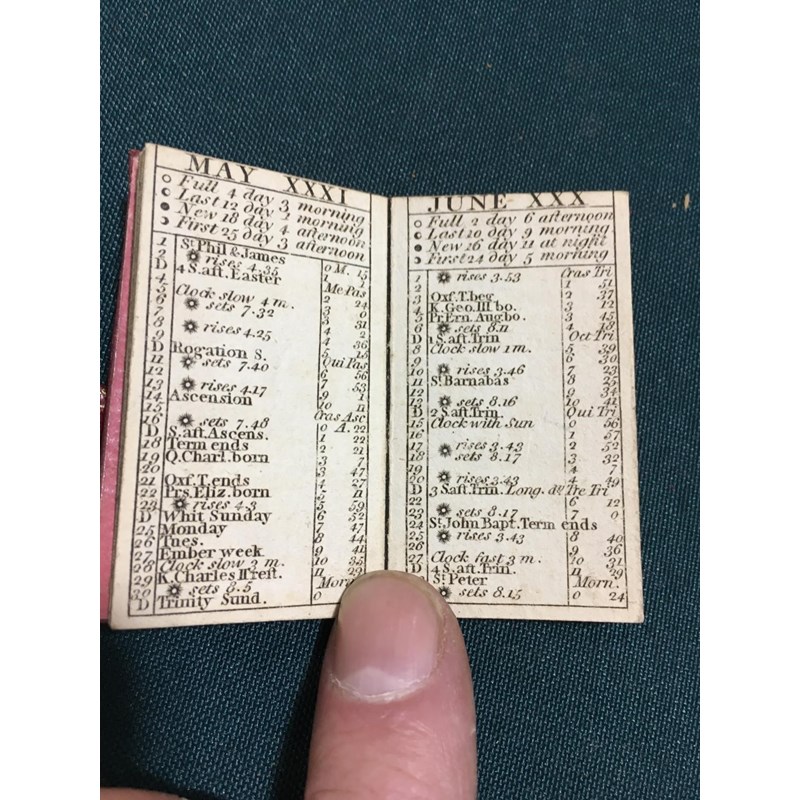 MAY XXXI
○ Full 4 day 3 morning
Last 12 day 1 morning
● New 18 day 4 afternoon
First 25 day 3 afternoon
1 St Phil & James 0 M. 15
2 rises 4.35 1 1
D 4 S. aft. Easter Me Pas
4 2 24
5 Clock slow 4 m. 3 0
6 sets 7.32
7 3 31
8 rises 4.25 4 2
9 4 36
D Rogation S. 5 15
11 sets 7.40 Qui Pas
12 6 56
13 rises 4.17 7 53
14 Ascension 9 1
15 10 11
16 sets 7.48 Cras Asc
D S. aft. Ascens. 0 A. 22
18 Term ends 1 22
19 Q. Charl. born 2 21
20 3 7
21 Oxf. T. ends 3 47
22 Prs. Eliz. born 4 27
23 rises 4.3 5 11
D Whit Sunday 5 59
25 Monday 6 52
26 Tues. 7 47
27 Ember week 8 44
28 Clock slow 3 m. 9 41
29 K. Charles II rest. 10 35
30 sets 8.5 11 29
D Trinity Sund. Morn
0
JUNE XXX
○ Full 2 day 6 afternoon
Last 10 day 9 morning
● New 16 day 11 at night
First 24 day 5 morning
1 rises 3.53 Cras Tri
2 1 51
3 Oxf. T. beg 2 37
4 K. Geo. III bo. 3 12
5 Pr. Ern. Aug. bo. 3 45
6 sets 8.11 4 18
D 1 S. aft. Trin Oct Tri
8 Clock slow 1 m. 5 39
9 6 30
10 rises 3.46 7 23
11 St. Barnabas 8 25
12 9 34
13 sets 8.16 10 41
D 2 S. aft. Trin. Qui Tri
15 Clock with Sun 0 56
16 1 57
17 rises 3.43 2 52
18 sets 8.17 3 32
19 4 7
20 rises 3.43 4 49
D 3 S. aft. Trin. Long. d. Tre Tri
22 6 12
23 sets 8.17 7 0
24 St. John Bapt. Term ends
25 rises 3.43 8 40
26 9 36
27 Clock fast 3 m. 10 31
D 4 S. aft. Trin. 11 29
St. Peter Morn.
sets 8.15 0 24